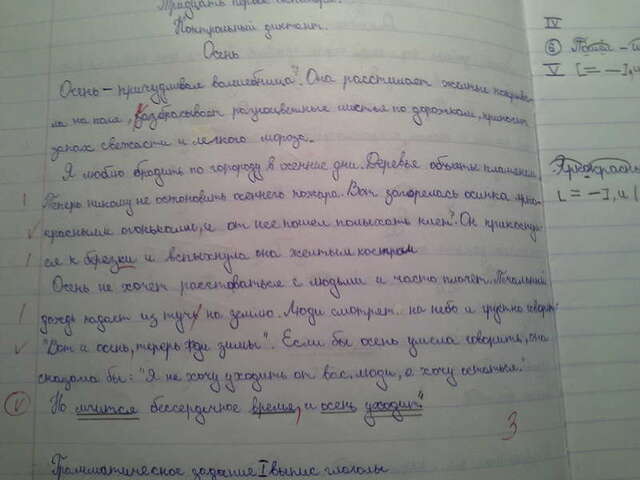 Тридцать первое октября.
Контрольный диктант.
Осень
Осень – причудливая волшебница? Она расстилает желтые покрыва-
ла на поля, разбрасывает разноцветные листья по дорожкам, приносит
запах свежести и легкого мороза.
Я люблю бродить по городу в осенние дни. Деревья объяты пламенем.
Теперь никому не остановить осеннего пожара. Вот загорелась осинка ярко-
красными огоньками, и от нее пошел полыхать клен? Он прикоснул-
ся к березки и вспыхнула она желтым костром
Осень не хочет расставаться с людьми и часто плачет. Печальный
дождь падает из туч на землю. Люди смотрят на небо и грустно говорят:
"Вот и осень, теперь жди зимы". Если бы осень умела говорить, она
сказала бы: "Я не хочу уходить от вас, люди, а хочу остаться."
Но мчится бессердечное время, и осень уходит."
3
Грамматическое задание I выпис глаголы
IV
6
V [= –], и
Яркокрасны
[= –], и (